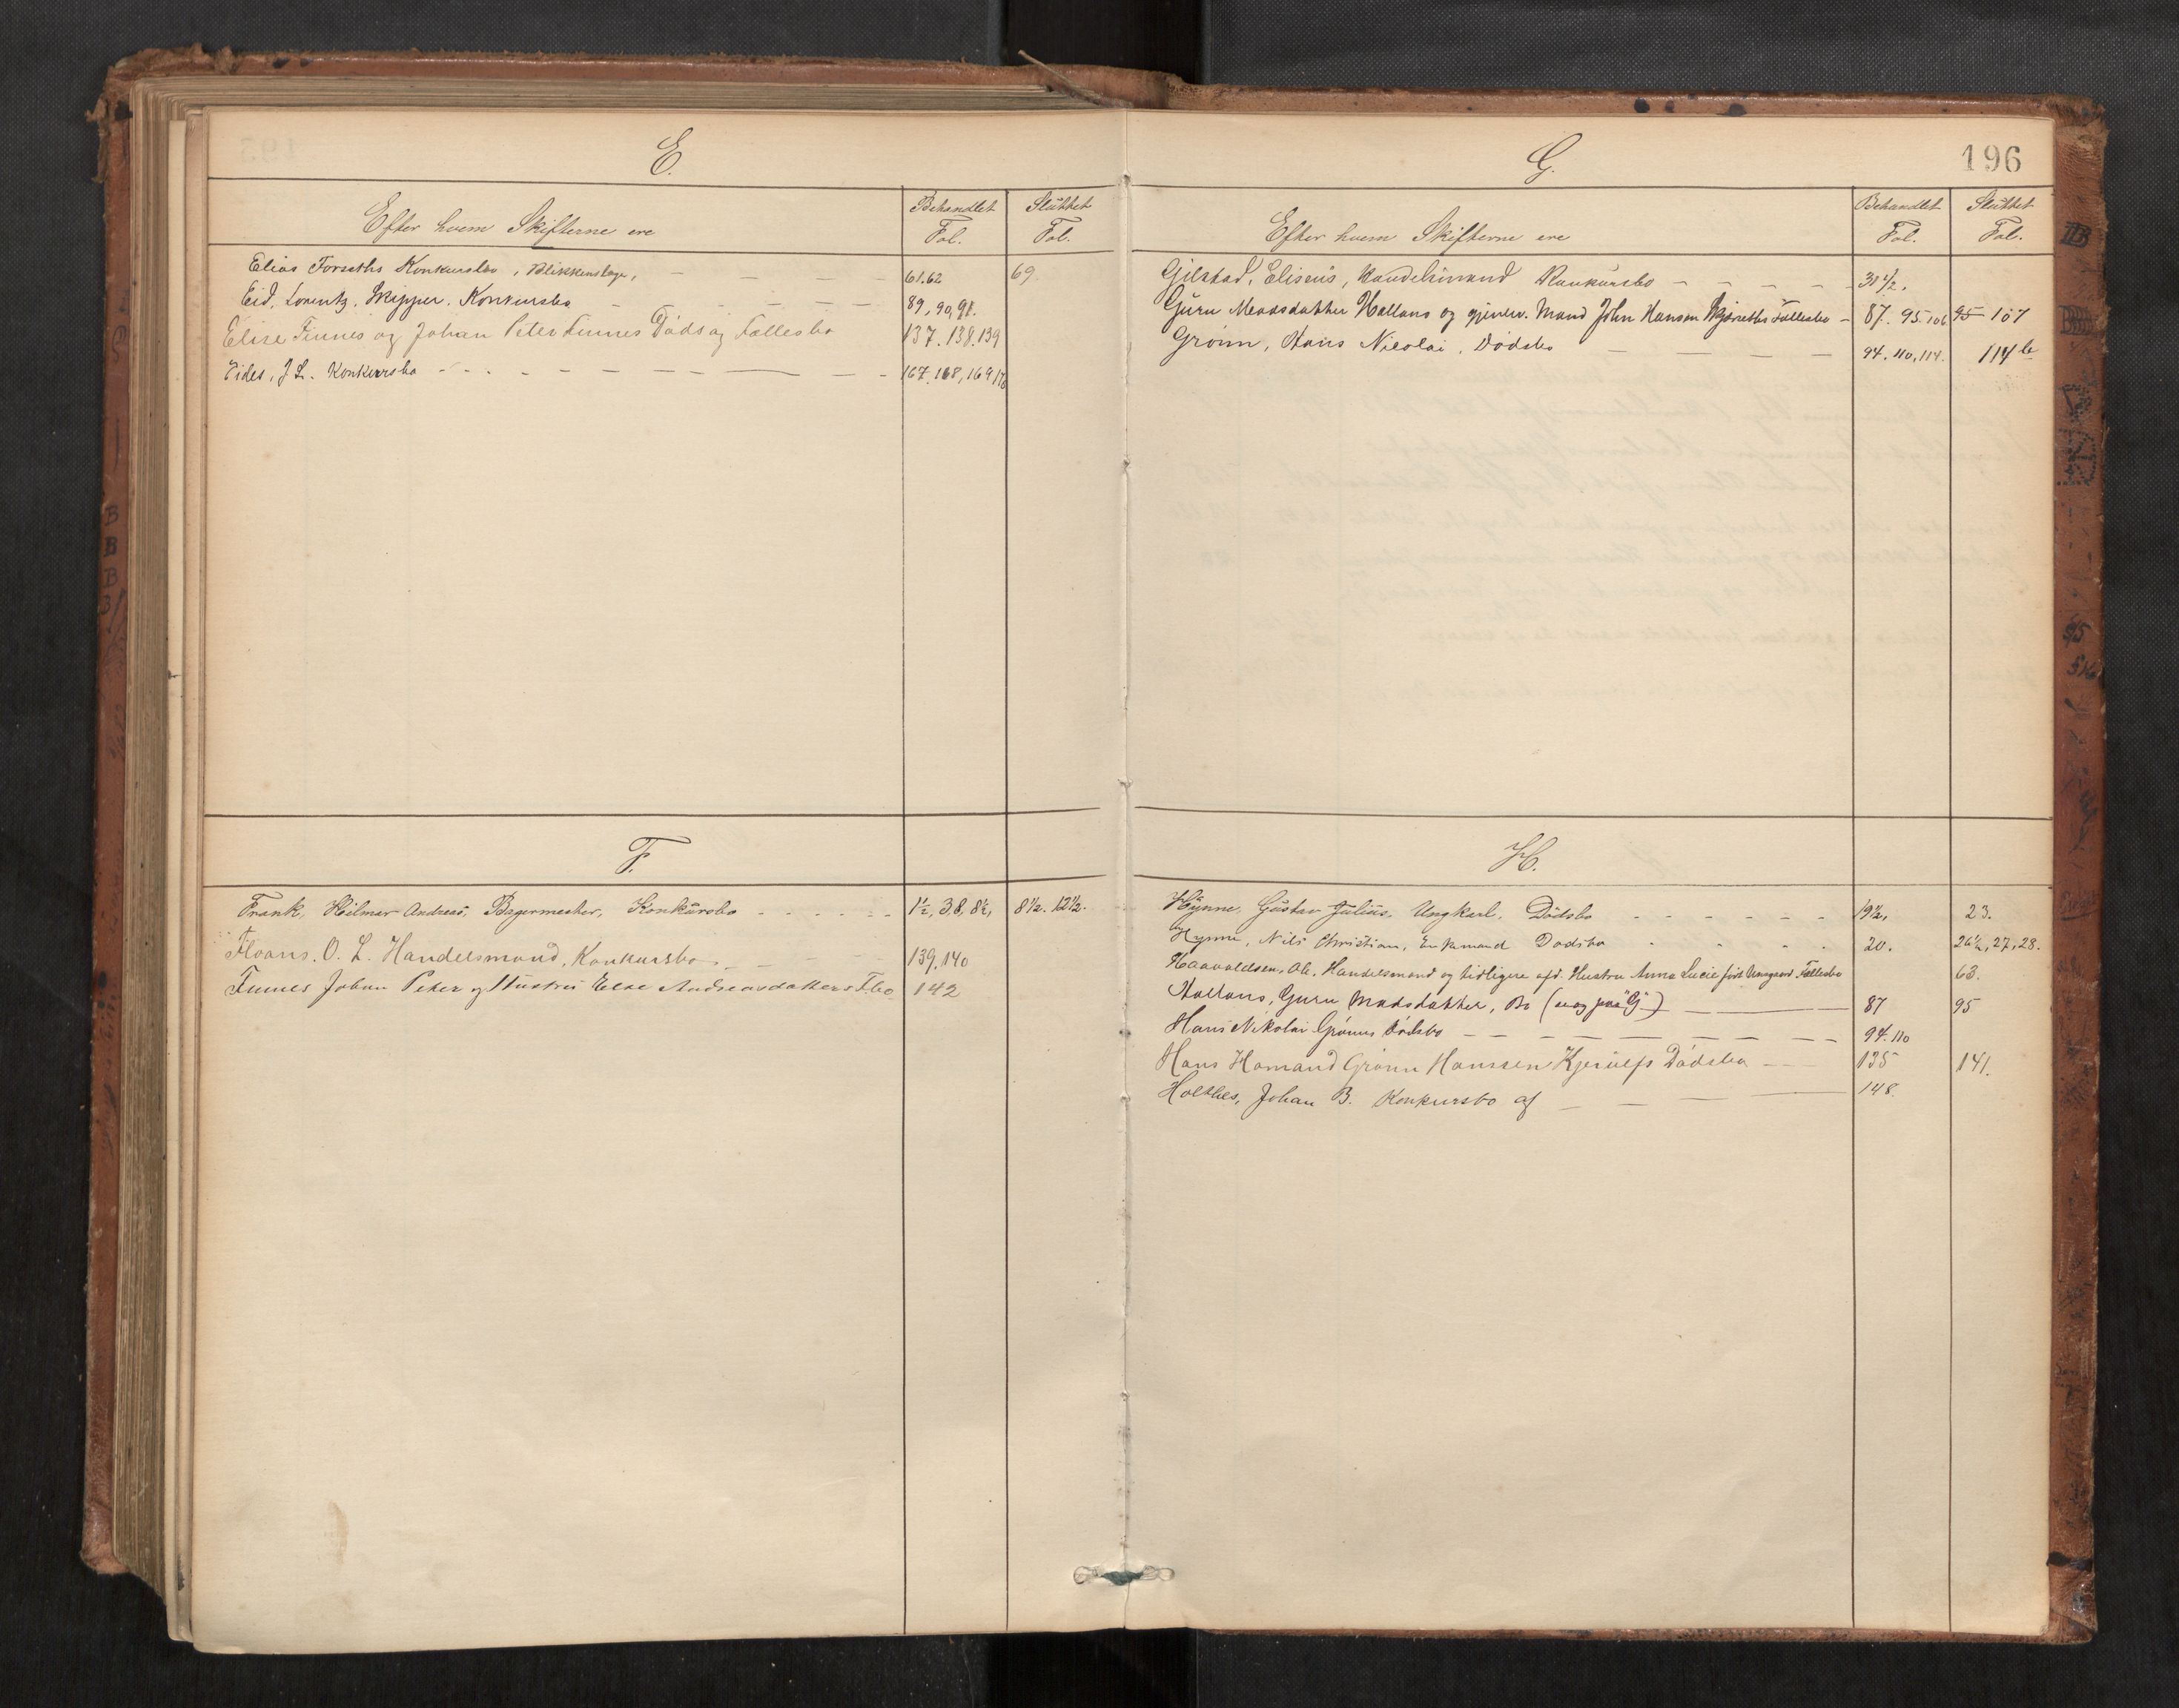 E.
Efter hvem Skifterne ere
Behandlet Fol.
Sluttet Fol.
Elias Forseths Konkursbo, Blikkenslager, 61.62 69.
Eid, Lorentz, Skipper. Konkursbo 89, 90, 98.
Elise Finnes og Johan Peter Finnes Döds og Fællesbo 137. 138. 139
Eides, J. L. Konkursbo 167, 168, 169
F.
Frank, Hilmar Andreas, Bagermester, Konkürsbo 1½, 3.8, 8½, 8½. 12½.
Floans. O. L. Handelsmand, Konkursbo. 139. 140
Finnes Johan Peter og Hustru Else Andreasdatters F.bo 142
196
G.
Efter hvem Skifterne ere
Behandlet Fol.
Sluttet Fol.
Gilstad, Eliseüs, Handelsmand Konkursbo 31½.
Guru Madsdatter Hallans og gjenlev. Mand John Hansen Fællesbo 87. 95. 106 95 107
Grönn, Hans Nicolai, Dödsbo 94. 110, 114. 114 b
H.
Hynne, Güstav Julius, Ungkarl. Dödsbo 19½, 23.
Hynne, Nils Christian, Enkemand Dødsbo 20. 26½, 27, 28.
Haavaldsen, Ole, Handelsmand og tidligere afd. Hustru Anna Lucie født Fællesbo 63.
Hallans, Guru Madsdatter, Bo (se og paa "G") 87 95
Hans Nikolai Grönns Dödsbo 94. 110
Hans Hamand Grönn Hanssen Kjerulfs Dödsbo 135 141.
Holthes, Johan B. Konkursbo af 148.